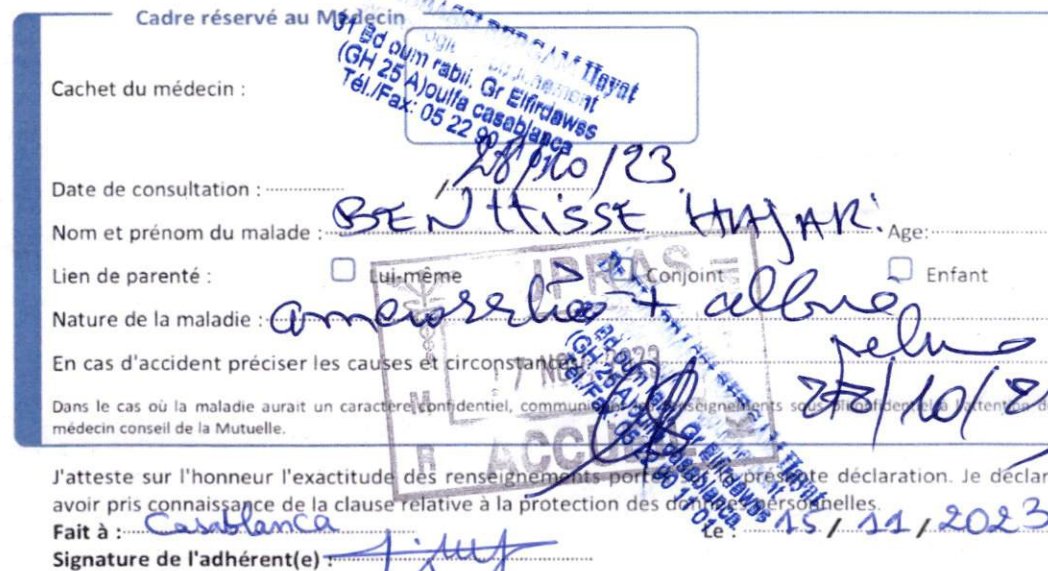 Cadre réservé au Médecin
Hayat
31 Bd oum rabii. Gr Elfirdawss
(GH 25 A)oulfa casablanca
Tél./Fax: 05 22 90
Cachet du médecin :
Date de consultation : 28/10/23
Nom et prénom du malade : BENHISSE HAJAR Age:
Lien de parenté : Lui-même Conjoint Enfant
Nature de la maladie : +
En cas d'accident préciser les causes et circonstances
Dans le cas où la maladie aurait un caractère confidentiel, les renseignements sous pli confidentiel à l'attention
médecin conseil de la Mutuelle.
ACCUEIL
J'atteste sur l'honneur l'exactitude des renseignements portés sur la présente déclaration. Je déclar
avoir pris connaissance de la clause relative à la protection des données personnelles.
Fait à : Casablanca Le : 15 / 11 / 2023
Signature de l'adhérent(e) :